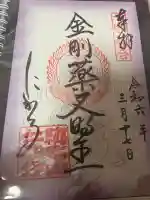 奉拝
令和六年
三月十七日
金剛藥叉明王